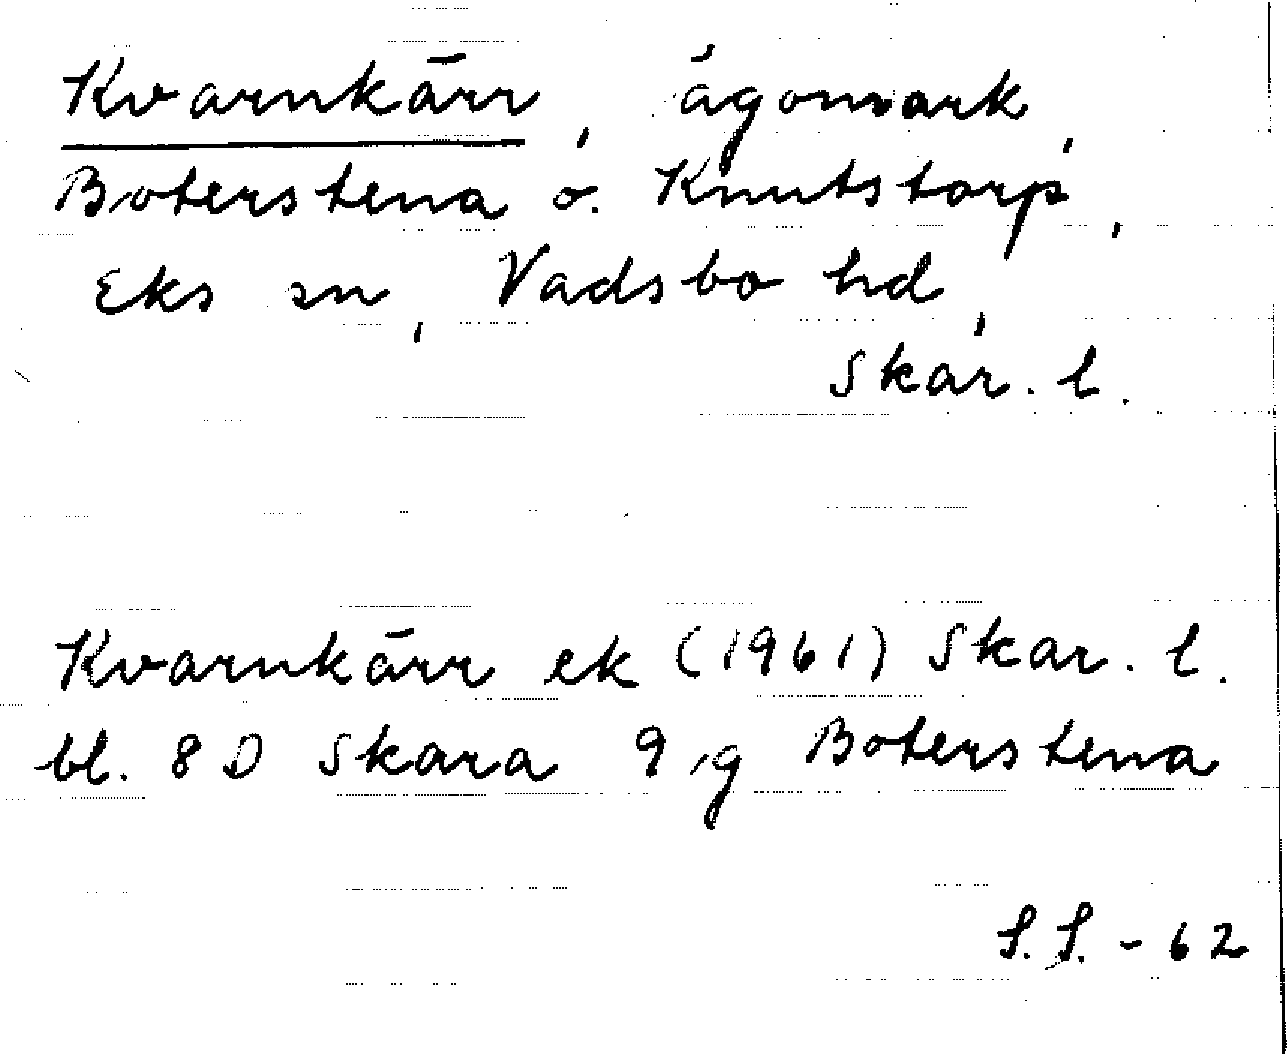 Kvarnkärr, ägomark,
Boterstena o. Knutstorp,
Eks sn, Vadsbo hd,
Skar. l.
Kvarnkärr ek (1961) Skar. l.
bl. 8 D Skara 9 g Boterstena
S.S. - 62